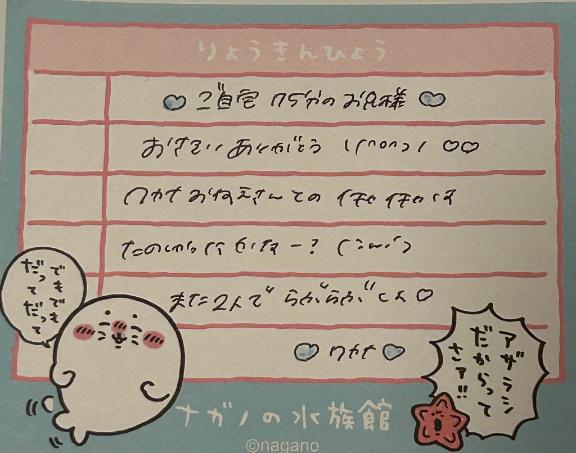 りょうきんひょう
ご自宅 のお兄様
おさそい ありがとう (^^) ♡♡
ワカナ おねえさんとの イチャイチャは
たのしかったかなー?
また2人で らぶらぶしよ♡
ワカナ
でもでも
だって
だって
アザラシ
だからって
さァ!!
ナガノの水族館
©nagano